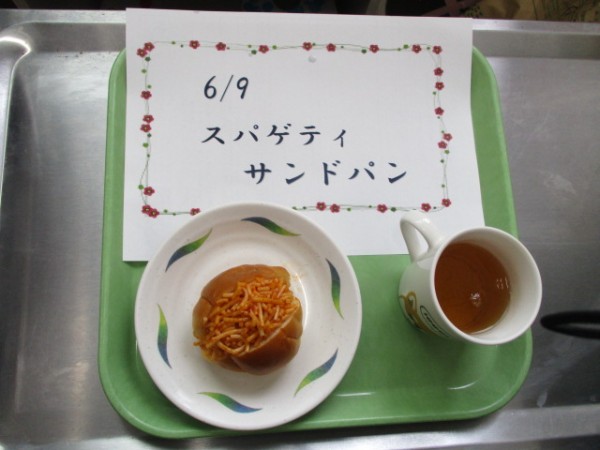 6/9
スパゲティ
サンドパン